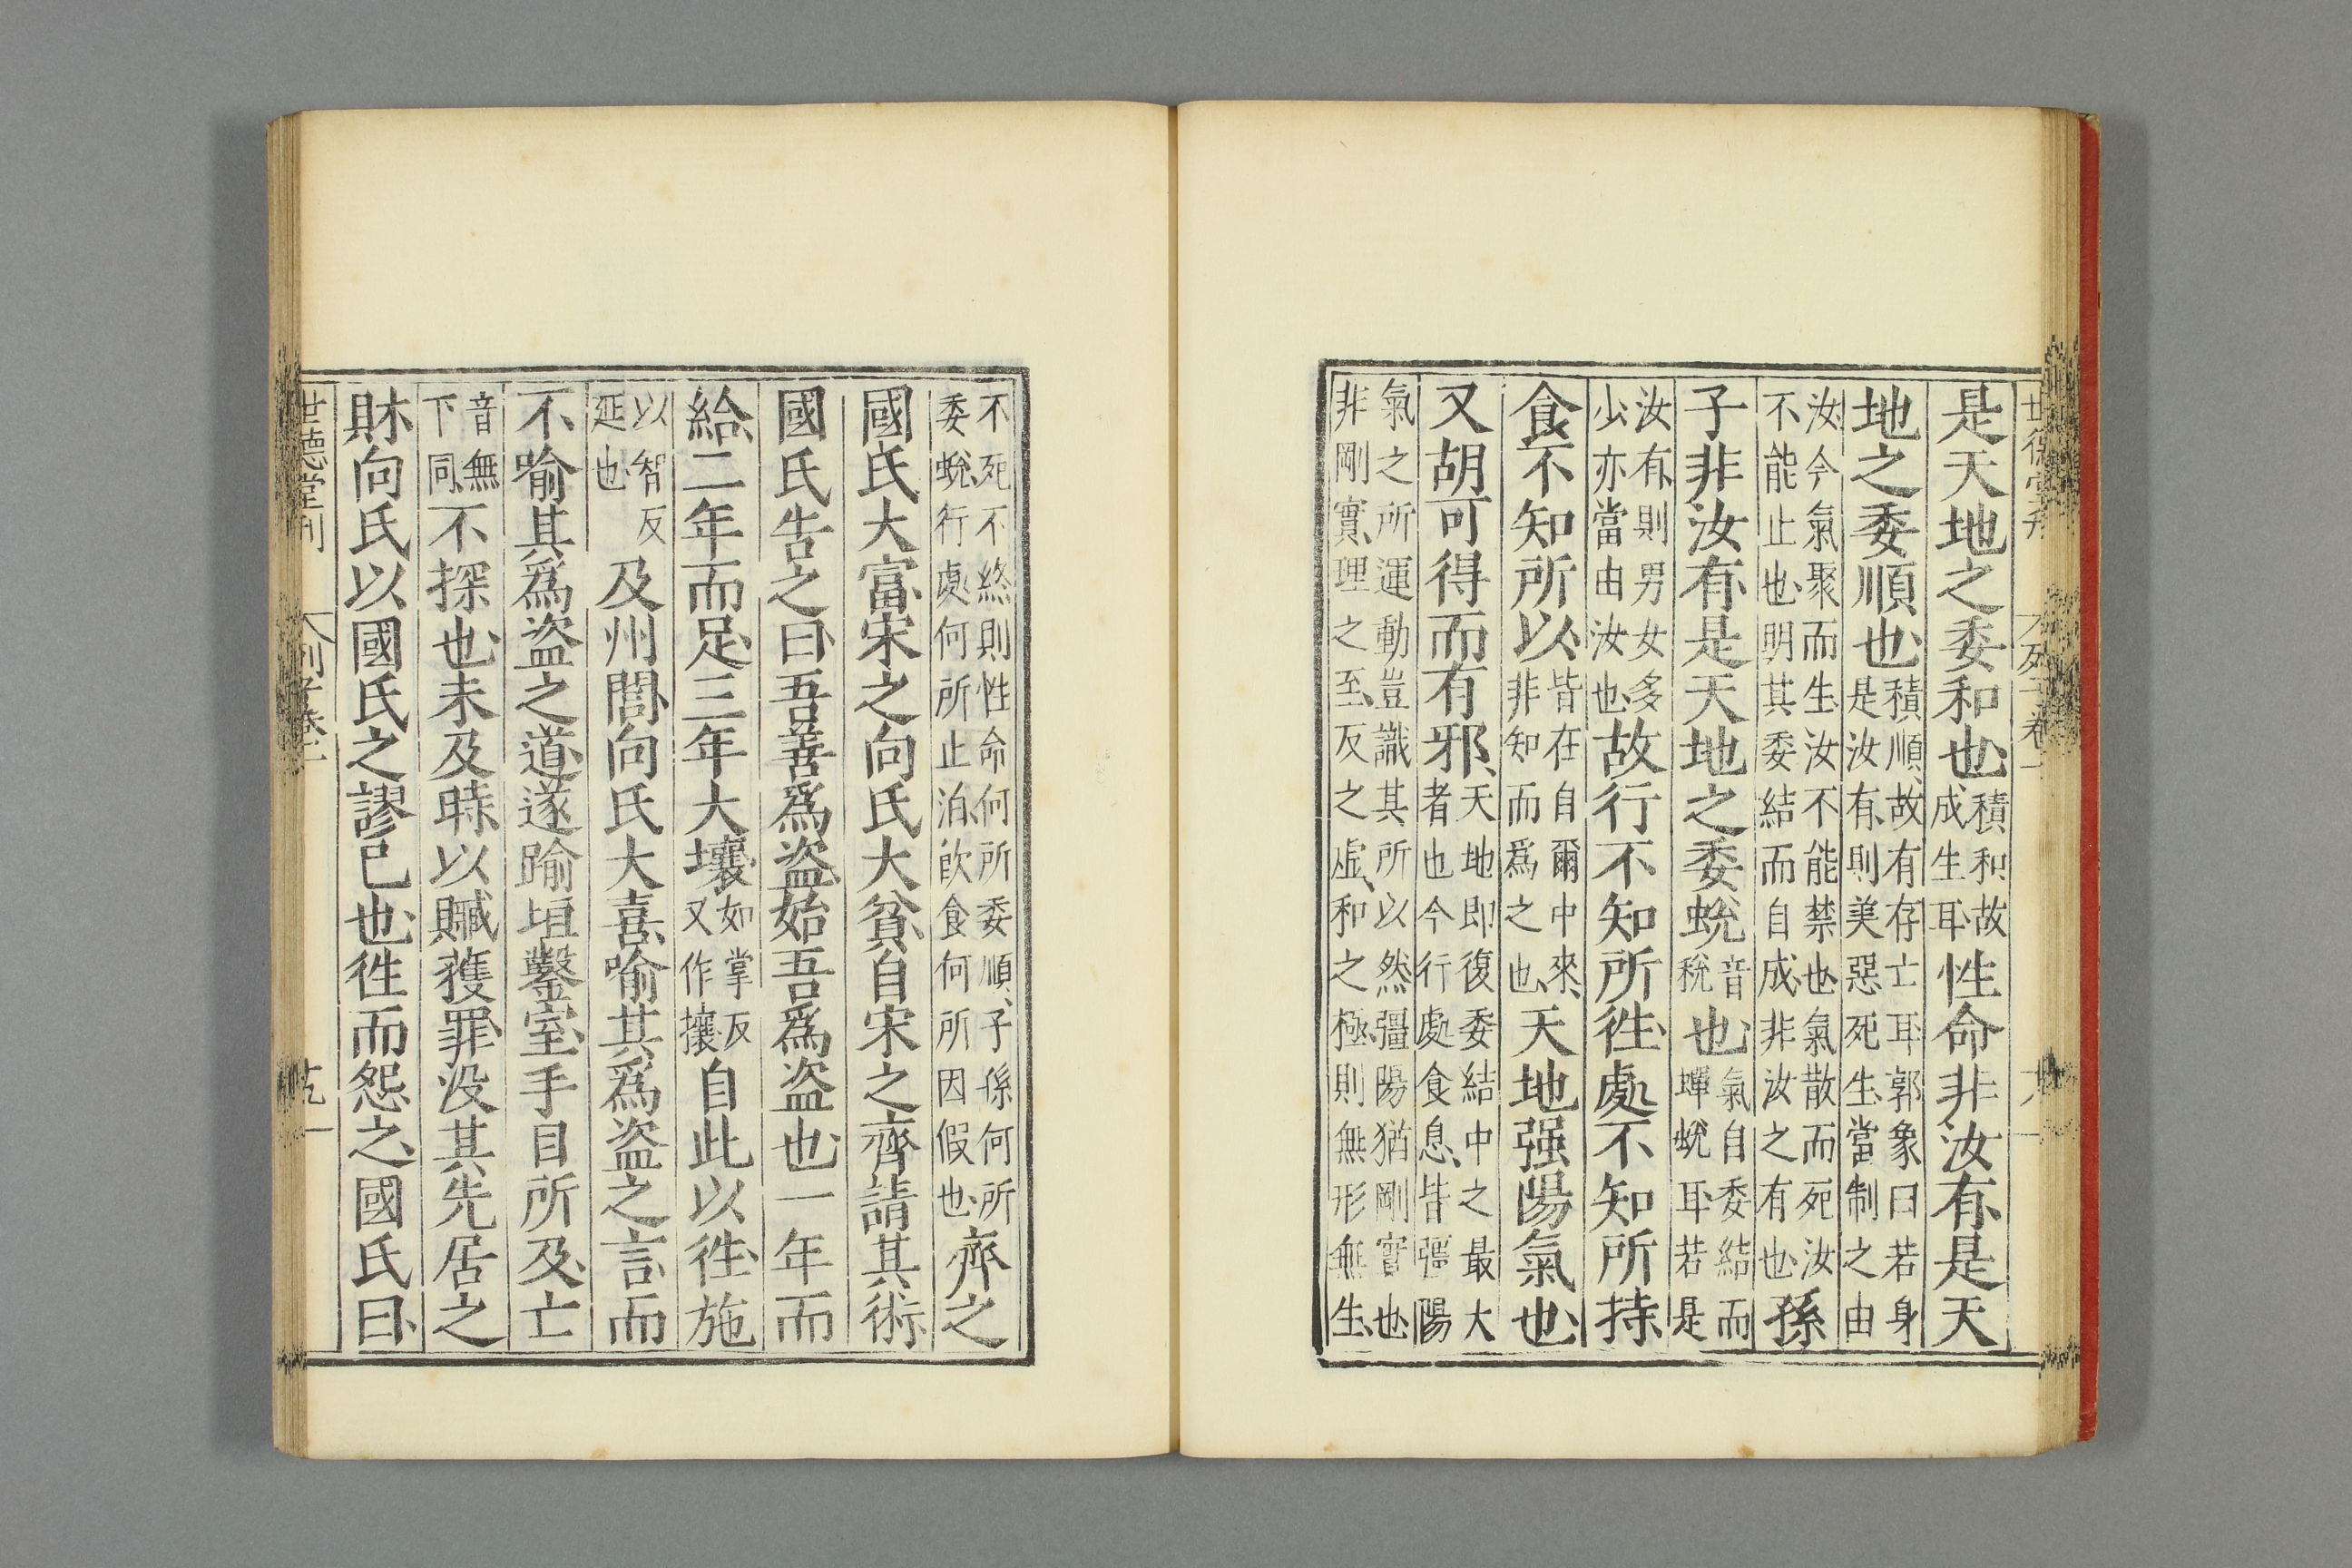 是天地之委和也積和故成生耳性命非汝有是天
地之委順也積順故有存亡耳郭象曰若身是汝有則美惡死生當制之由
汝今氣聚而生汝不能禁也氣散而死汝不能止也明其委結而自成非汝之有也孫
子非汝有是天地之委蛻音稅也氣自委結而蟬蛻耳若是
汝有則男女多少亦當由汝也故行不知所徃處不知所持
食不知所以皆在自爾中來非知而爲之也天地强陽氣也
又胡可得而有邪天地即復委結中之最大者也今行處食息皆彊陽
氣之所運動豈識其所以然彊陽猶剛實也非剛實理之至反之虛和之極則無形無生
不死不終則性命何所委順子孫何所委蛻行處何所止泊飲食何所因假也齊之
國氏大富宋之向氏大貧自宋之齊請其術
國氏告之曰吾善爲盜始吾爲盜也一年而
給二年而足三年大壤如掌反又作攘自此以徃施
以智反延也及州閭向氏大喜喻其爲盜之言而
不喻其爲盜之道遂踰垣鑿室手目所及亡
音無下同不探也未及時以贓獲罪没其先居之
財向氏以國氏之謬己也徃而怨之國氏曰
世德堂刊